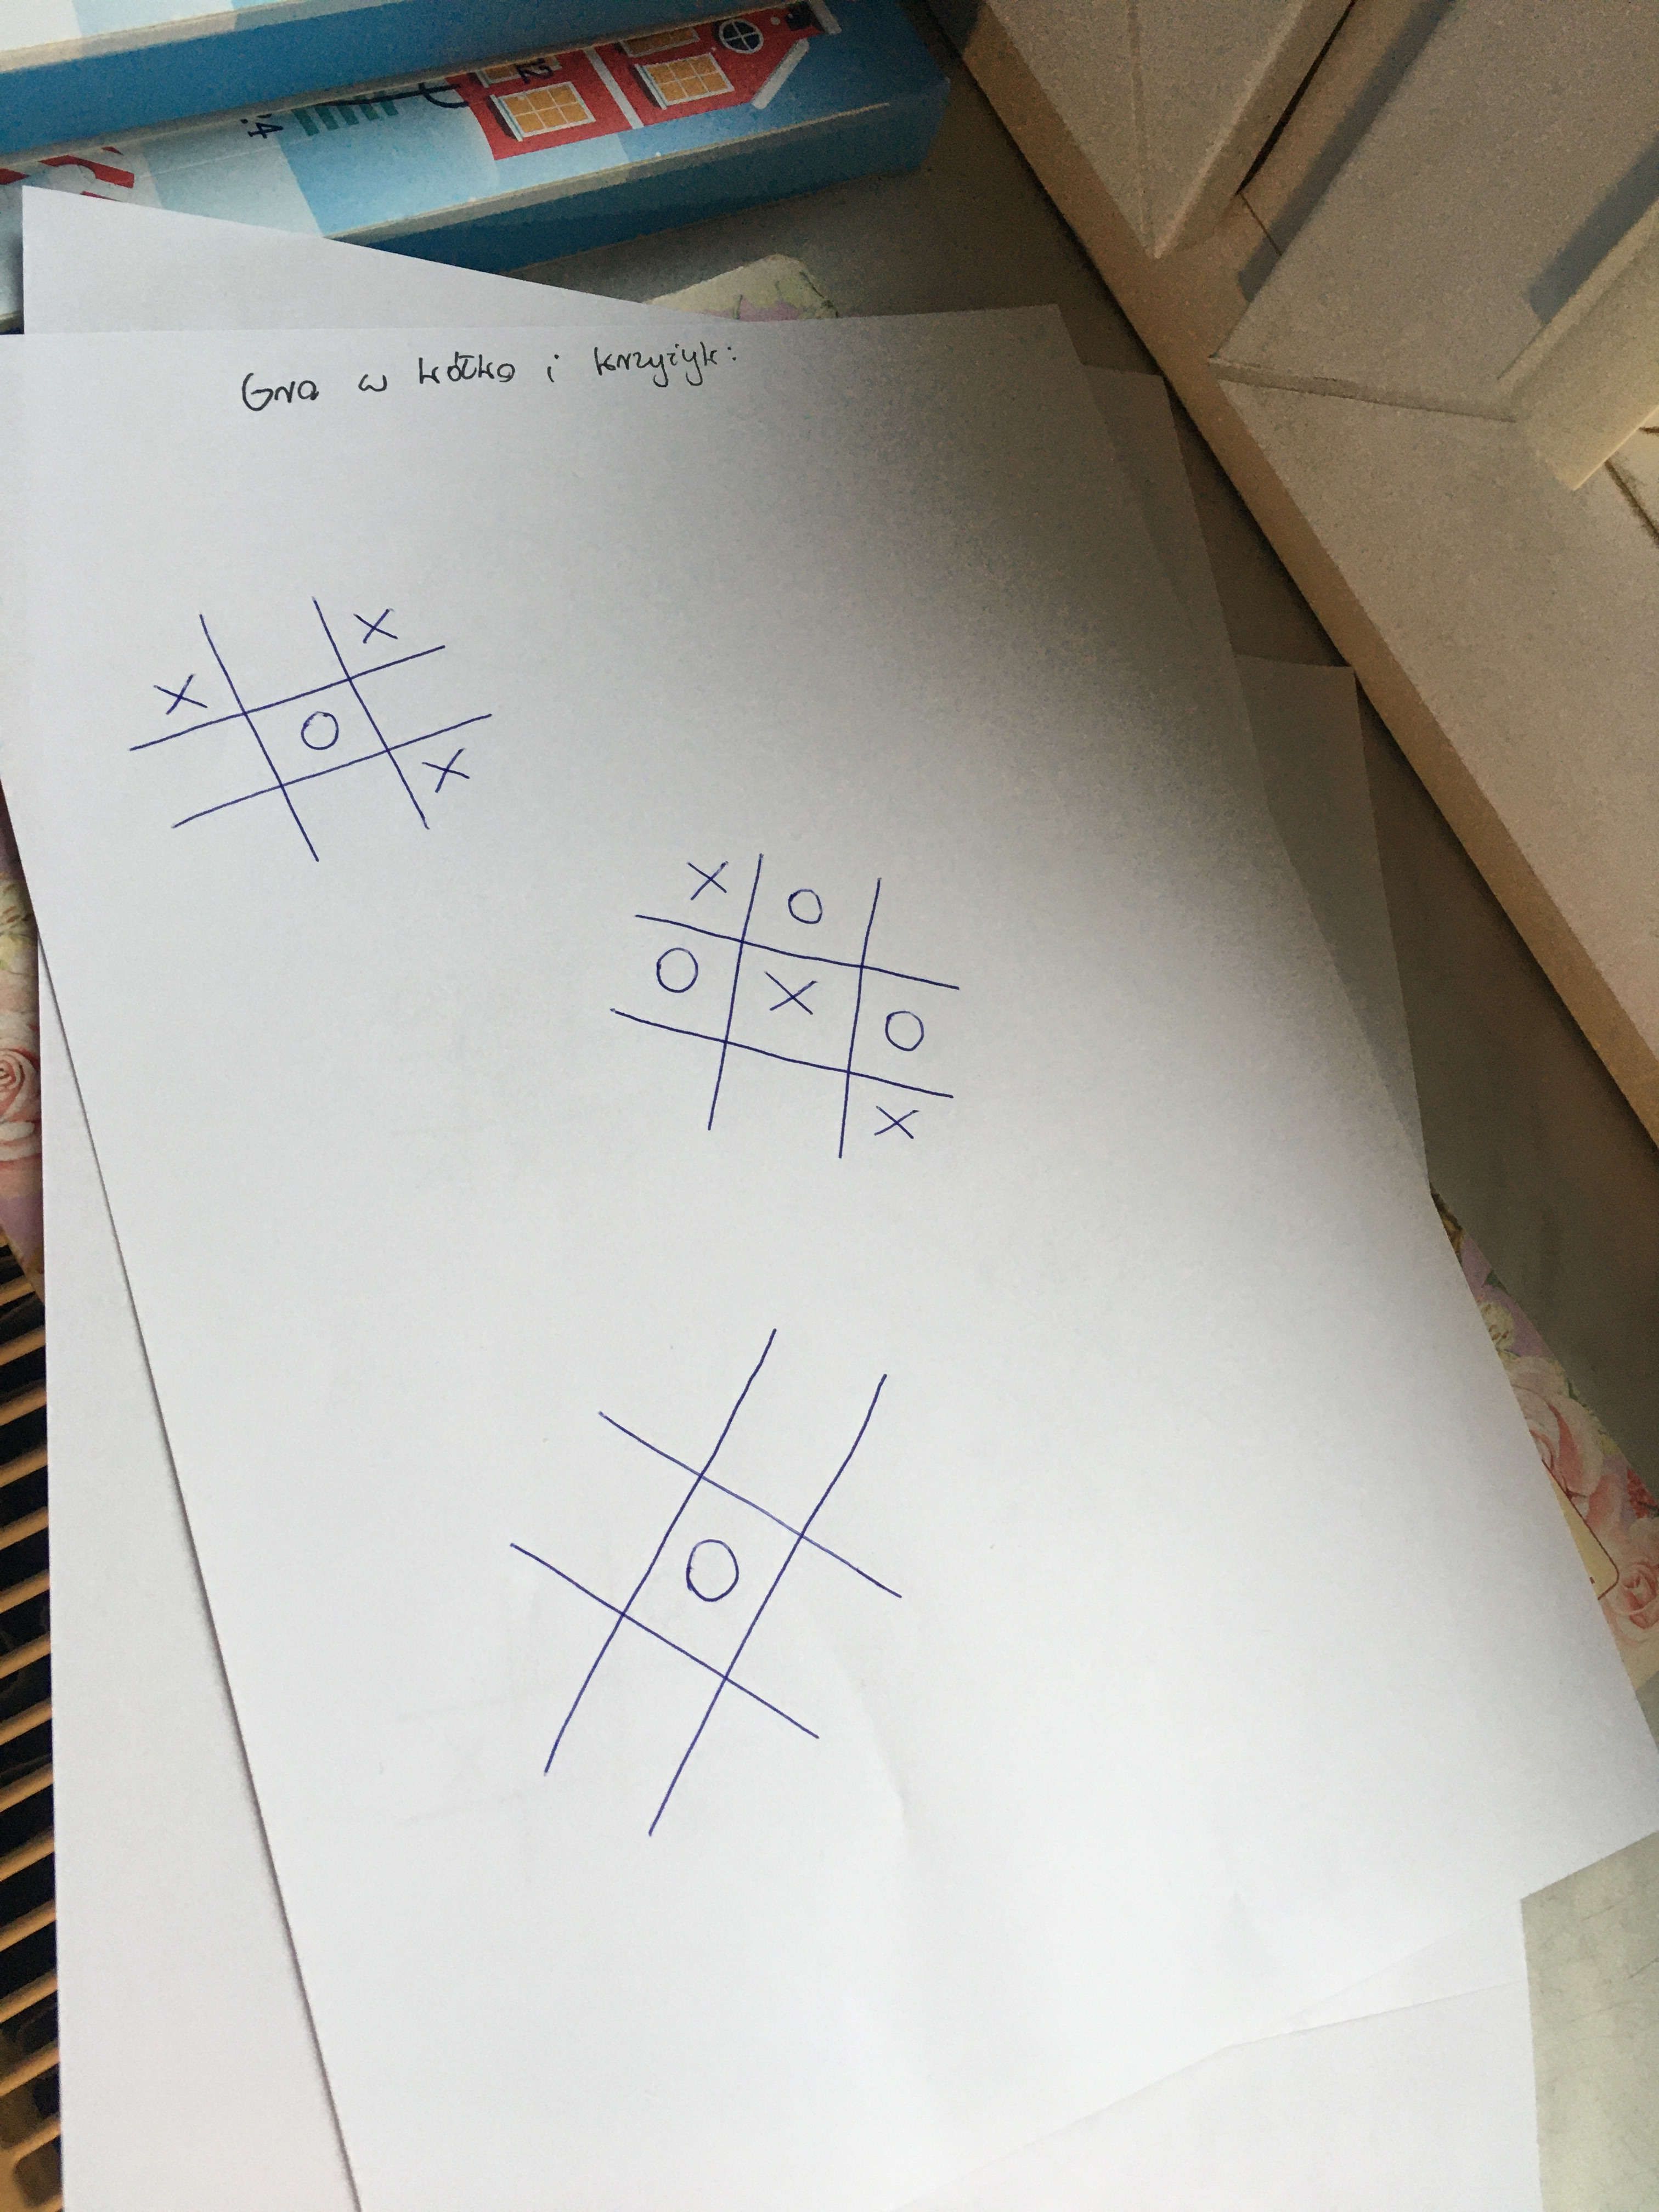 Gra w kółko i krzyżyk:
X X
O
X
X O
O X O
X
O